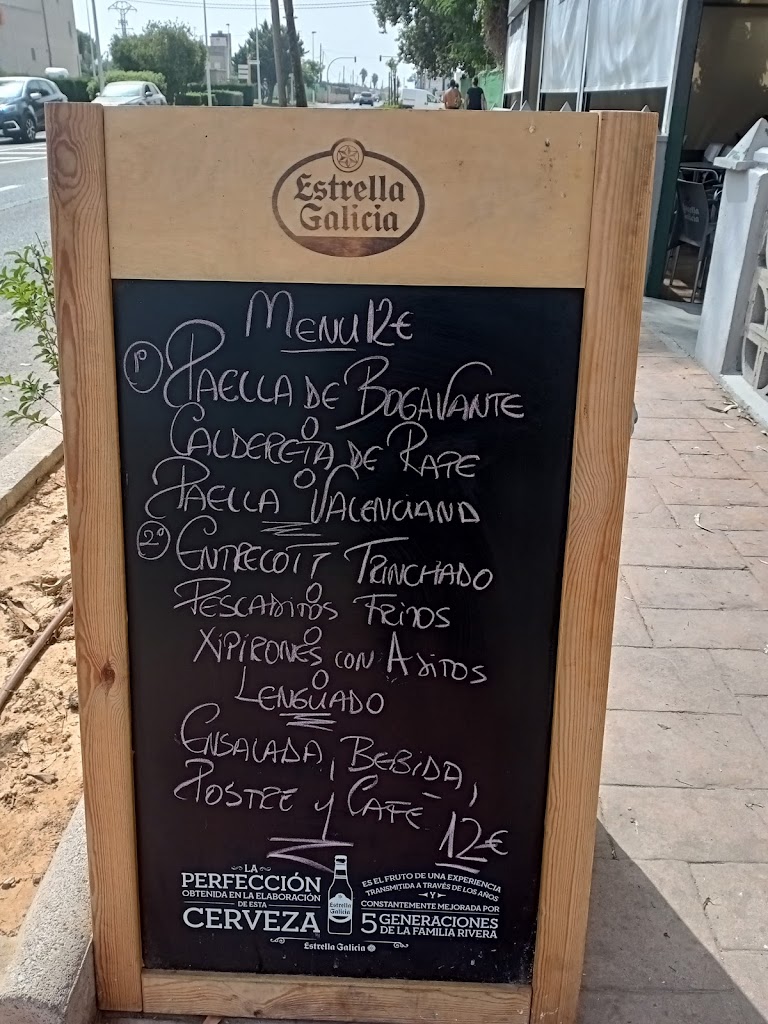 Estrella
Galicia
MENU 12€
1º PAELLA DE BOGAVANTE
O
CALDERETA DE RAPE
O
PAELLA VALENCIANA
2º ENTRECOTT TRINCHADO
O
PESCADITOS FRITOS
O
XIPIRONES CON AJITOS
O
LENGUADO
ENSALADA, BEBIDA,
POSTRE y CAFE 12€
LA
PERFECCIÓN
OBTENIDA EN LA ELABORACIÓN
DE ESTA
CERVEZA
Estrella
Galicia
ES EL FRUTO DE UNA EXPERIENCIA
TRANSMITIDA A TRAVÉS DE LOS AÑOS
Y
CONSTANTEMENTE MEJORADA POR
5 GENERACIONES
DE LA FAMILIA RIVERA
Estrella Galicia